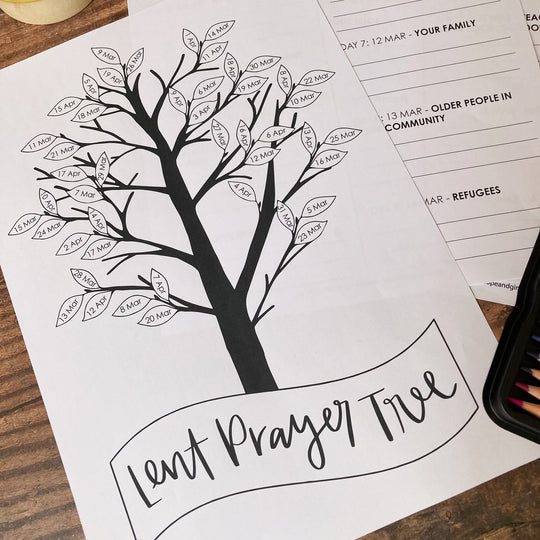 9 Mar
26 Mar
19 Apr
5 Apr
15 Apr
18 Mar
11 Mar
21 Mar
17 Apr
29 Mar
7 Mar
10 Apr
15 Mar
24 Mar
14 Apr
2 Apr
17 Mar
28 Mar
13 Mar
12 Apr
7 Apr
8 Mar
20 Mar
1 Apr
14 Mar
11 Apr
18 Apr
30 Mar
6 Mar
19 Mar
9 Apr
3 Apr
8 Apr
22 Mar
10 Mar
27 Mar
16 Apr
6 Apr
12 Mar
13 Apr
25 Mar
16 Mar
4 Apr
5 Mar
23 Mar
Lent Prayer Tree
DAY 7: 12 MAR - YOUR FAMILY
: 13 MAR - OLDER PEOPLE IN
COMMUNITY
MAR - REFUGEES